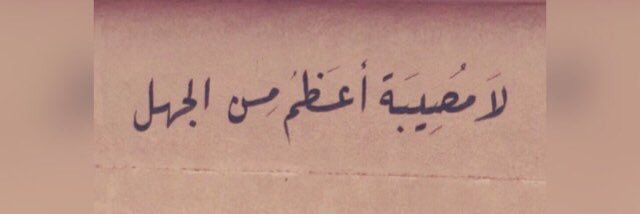 لَا مُصِيبَة أعَظَمُ مِن الجهل